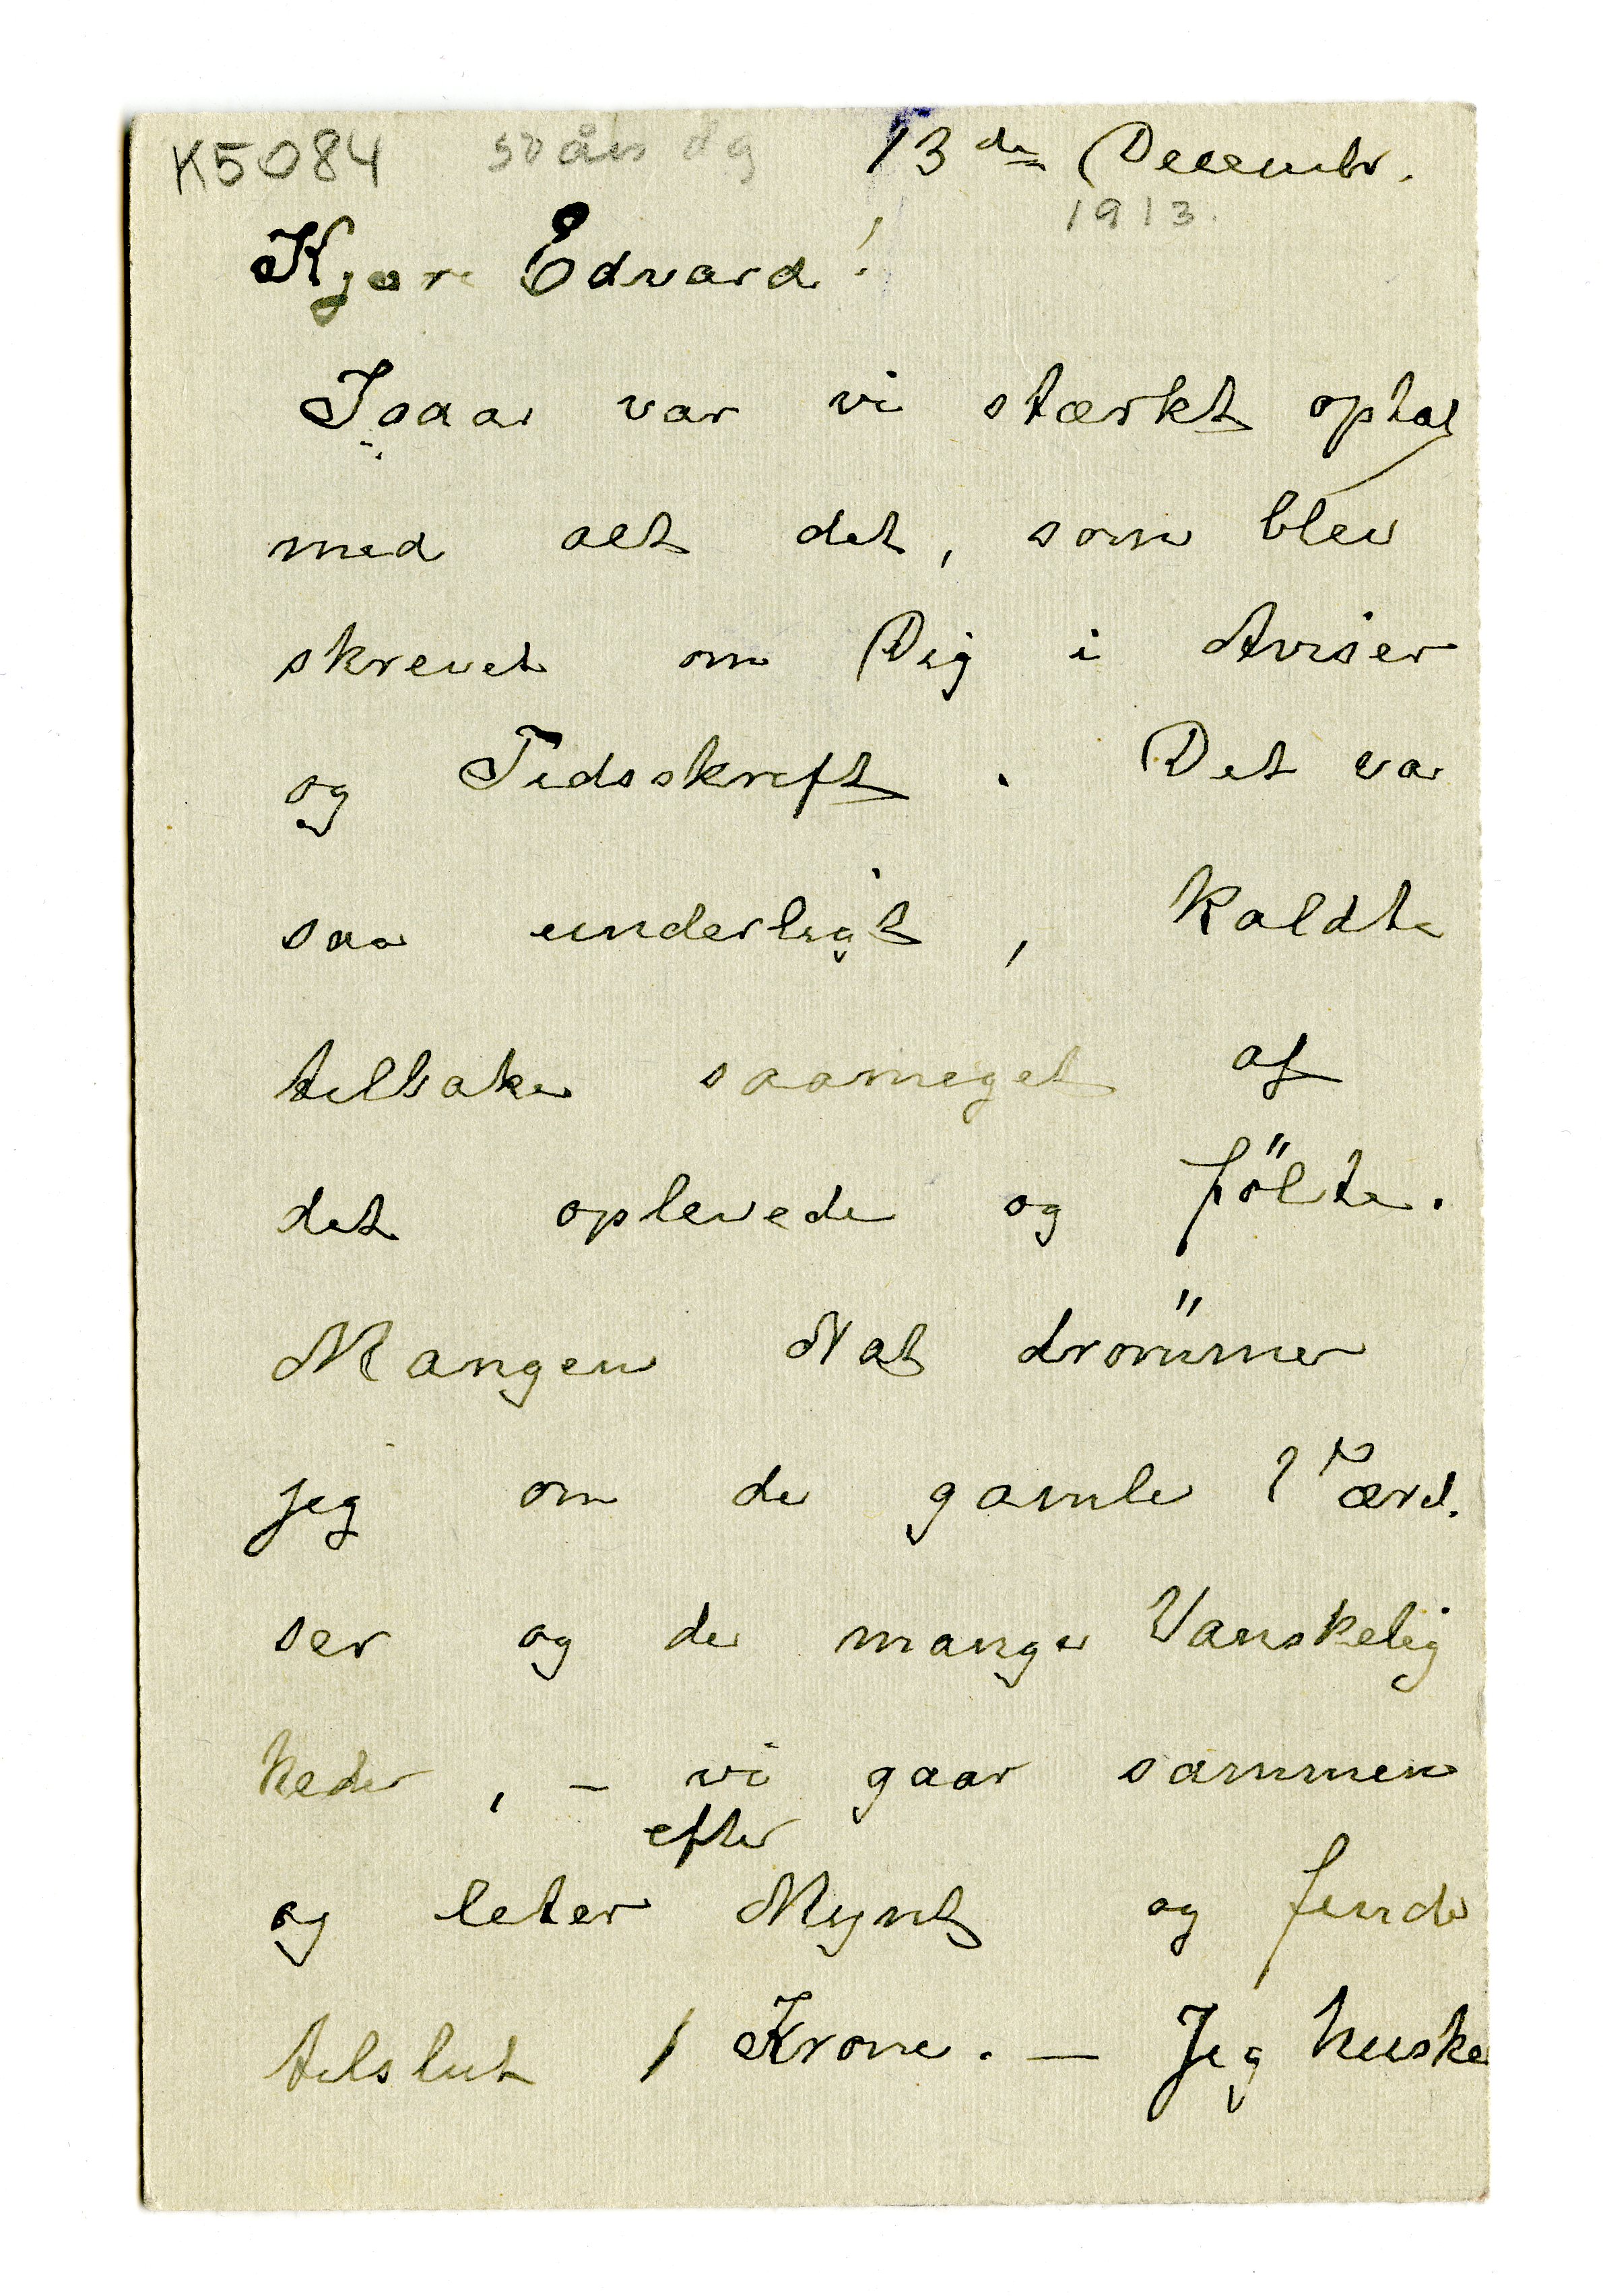 K5084 50 års dag 13de Decembr.
1913.
Kjære Edvard!
Igaar var vi stærkt optat
med alt det, som blev
skrevet om Dig i Aviser
og Tidsskrift. Det var
saa underligt, kaldte
tilbake saameget af
det oplevede og fölte.
Mangen Nat drömmer
jeg om de gamle Færd.
ser og de mange Vanskelig
heder, – vi gaar sammen
efter
og leter Mynt og finder
tilslut 1 Krone. — Jeg husker